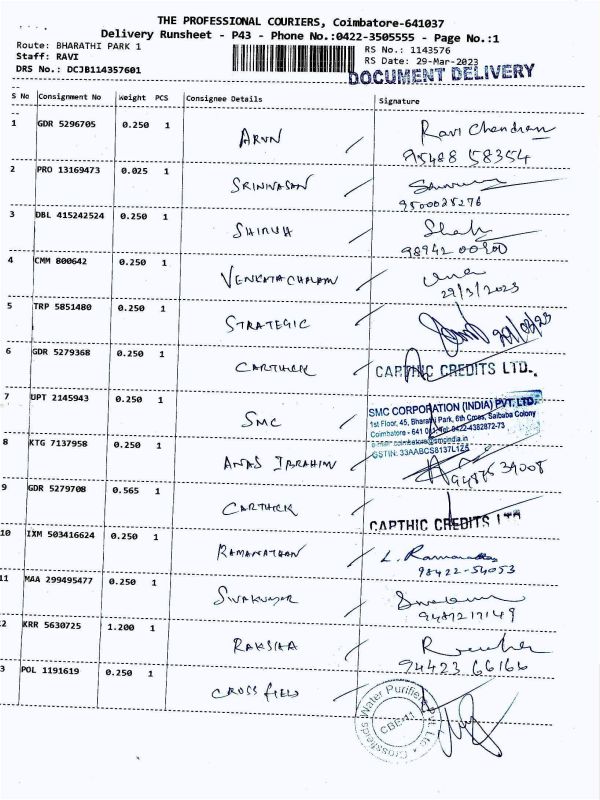 THE PROFESSIONAL COURIERS, Coimbatore-641037
Delivery Runsheet - P43 - Phone No.:0422-3505555 - Page No.:1
Route: BHARATHI PARK 1
RS No.: 1143576
Staff: RAVI
RS Date: 29-Mar-2023
DRS No.: DCJB114357601
DOCUMENT DELIVERY
S No Consignment No Weight PCS Consignee Details Signature
1 GDR 5296705 0.250 1 ARUN Ravi Chandran
95488 58354
2 PRO 13169473 0.025 1 SRINIVASAN
9500025276
3 DBL 415242524 0.250 1
98942 00900
4 CMM 800642 0.250 1 VENKATACHALAM
29/3/2023
5 TRP 5851480 0.250 1 STRATEGIC
6 GDR 5279368 0.250 1 CARTHICK CAPTHIC CREDITS LTD.
7 UPT 2145943 0.250 1 SMC SMC CORPORATION (INDIA) PVT. LTD.
1st Floor, 45, Bharathi Park, 6th Cross, Saibaba Colony
Coimbatore - 641 Tel: 0422-4382872-73
GSTIN: 33AABCS8137L1Z5
8 KTG 7137958 0.250 1 ANAS IBRAHIM
9487534008
9 GDR 5279708 0.565 1 CARTHICK CAPTHIC CREDITS
10 IXM 503416624 0.250 1 RAMANATHAN L. Ramanathan
98422-54053
11 MAA 299495477 0.250 1 SIVAKUMAR
9487217149
2 KRR 5630725 1.200 1 RAKSHA
94423 66166
3 POL 1191619 0.250 1 CROSS FIELD
Crossfields Water Purifiers Pvt. Ltd
CBE-11